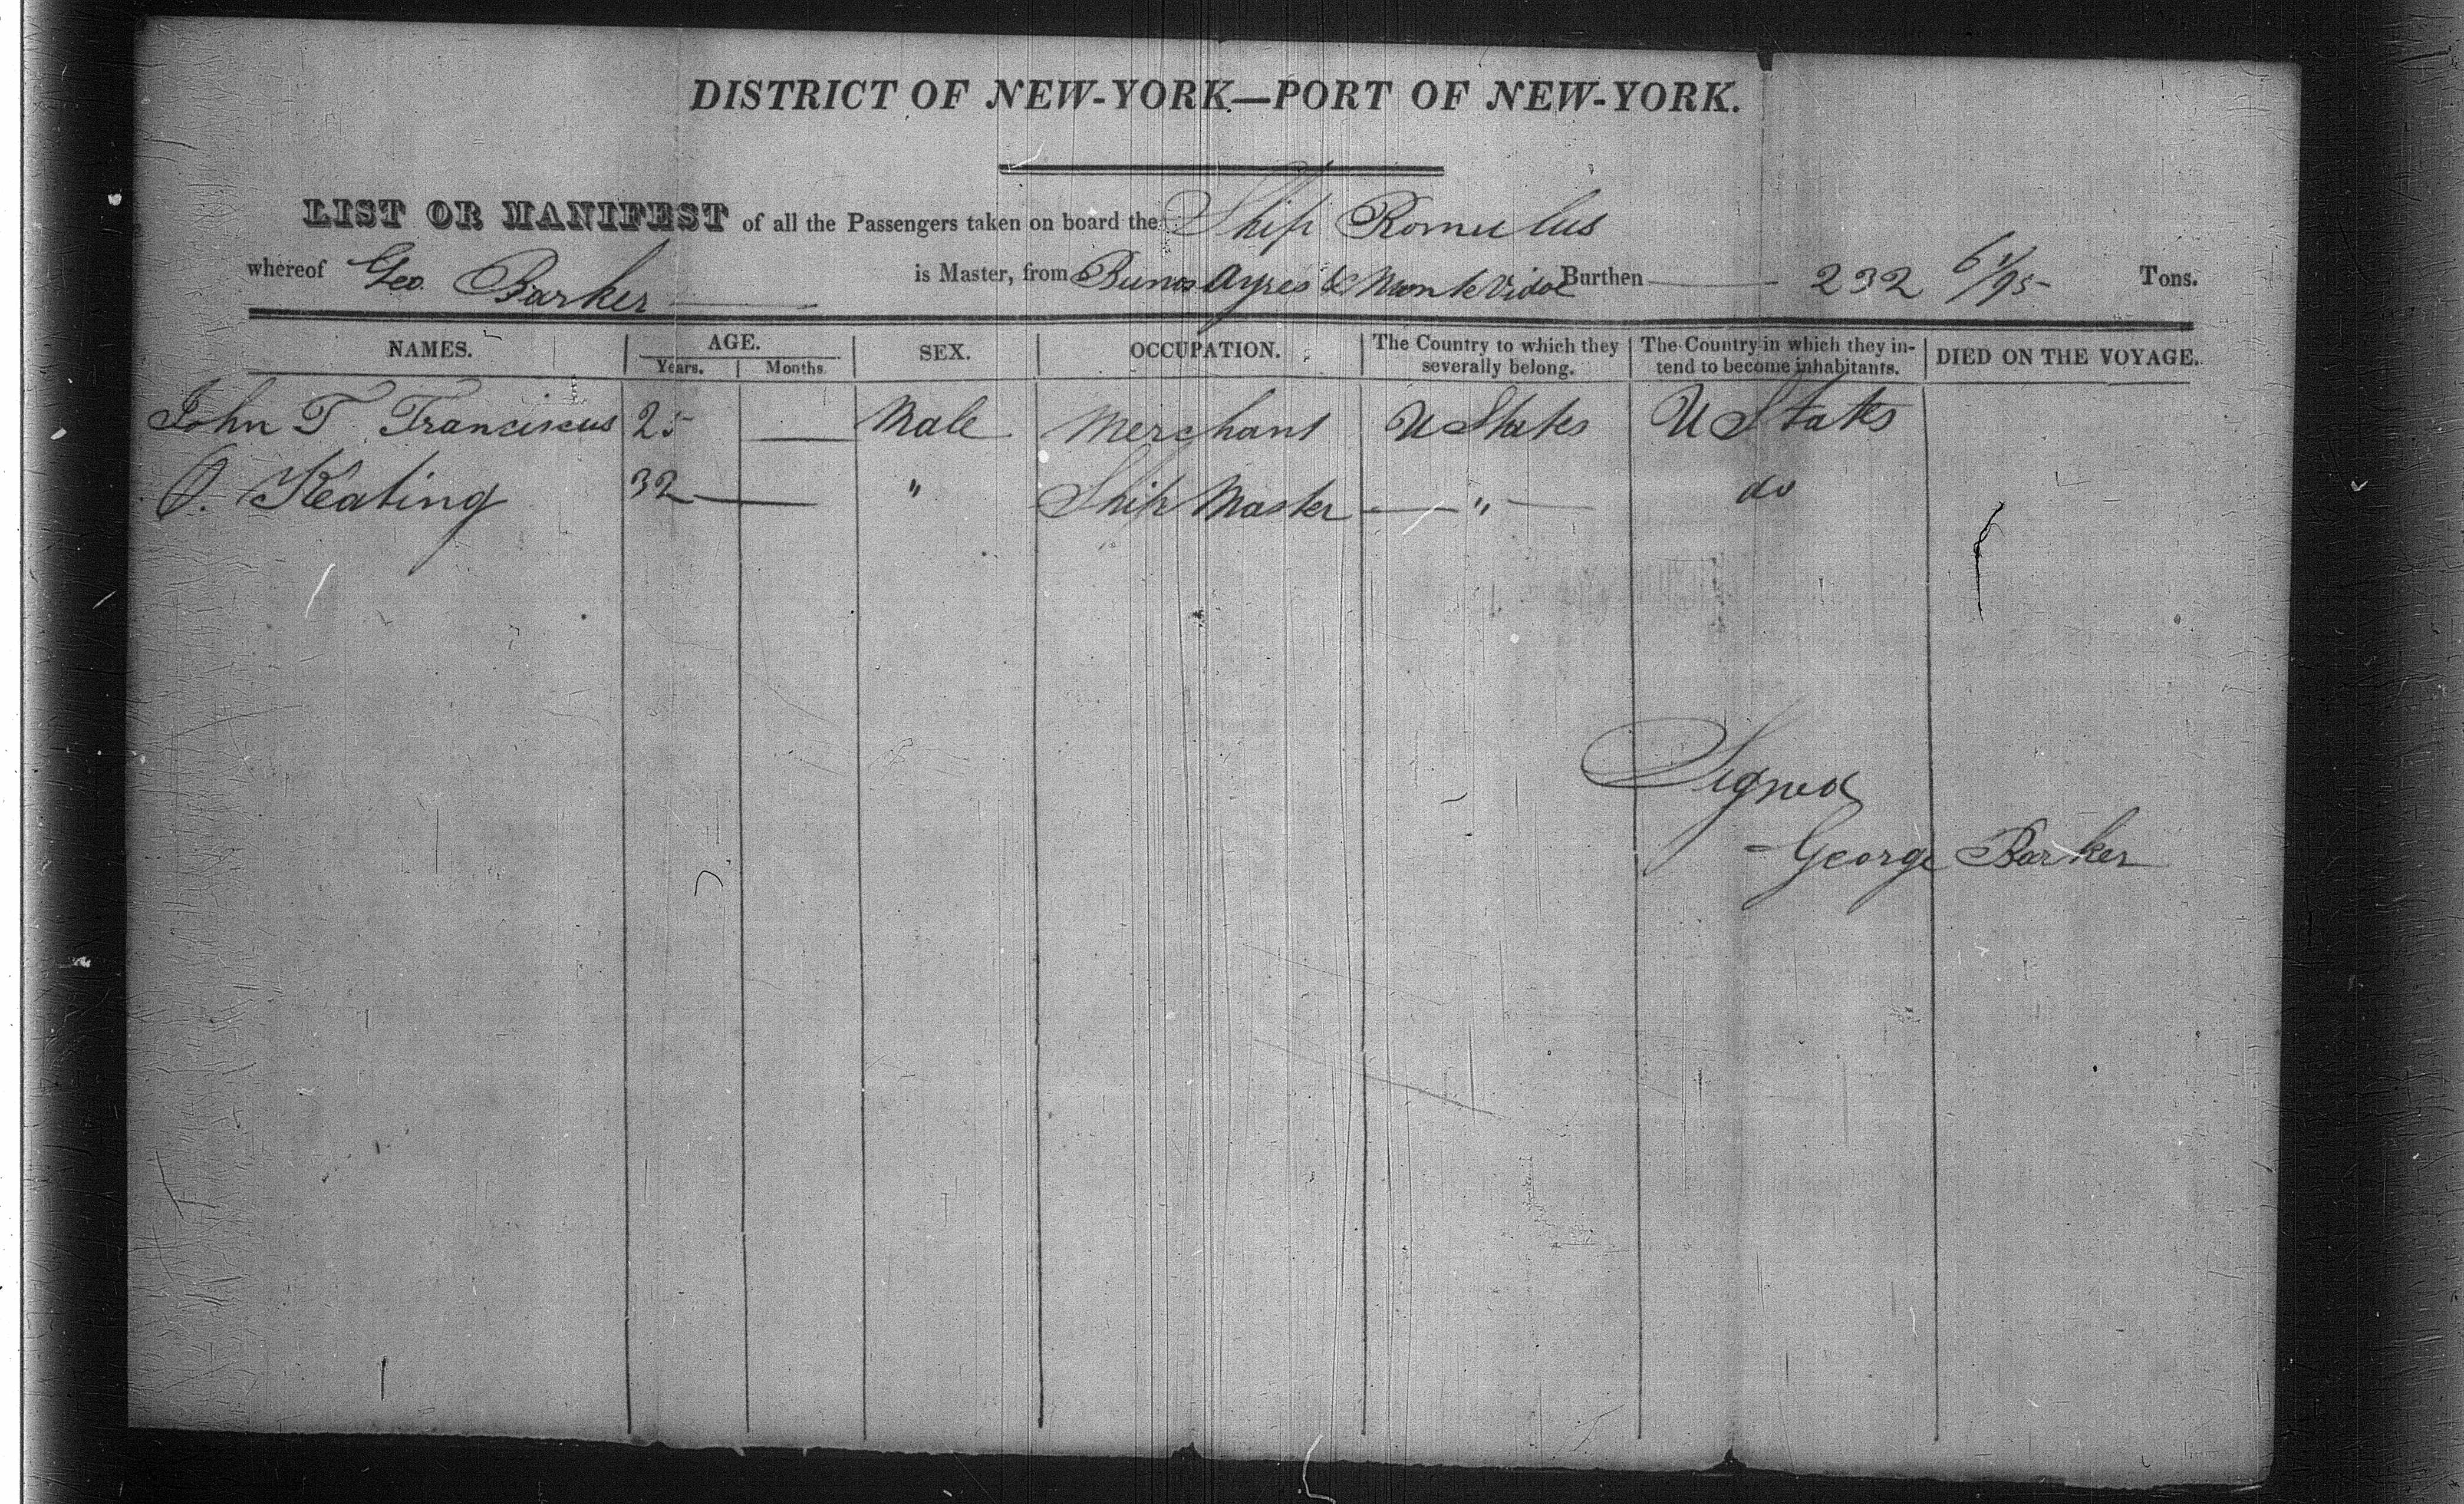 DISTRICT OF NEW-YORK—PORT OF NEW-YORK.
LIST OR MANIFEST of all the Passengers taken on board the Ship Romulus
whereof Geo. Barker is Master, from Bunos Ayres & Monte Vidoe Burthen 232 61/95 Tons.
NAMES. AGE. SEX. OCCUPATION. The Country to which they severally belong. The Country in which they intend to become inhabitants. DIED ON THE VOYAGE.
Years. Months.
John T Franciscus 25 — Male Merchant U States U States
O. Keating 32 — " Ship Master — " — do
Signed
George Barker